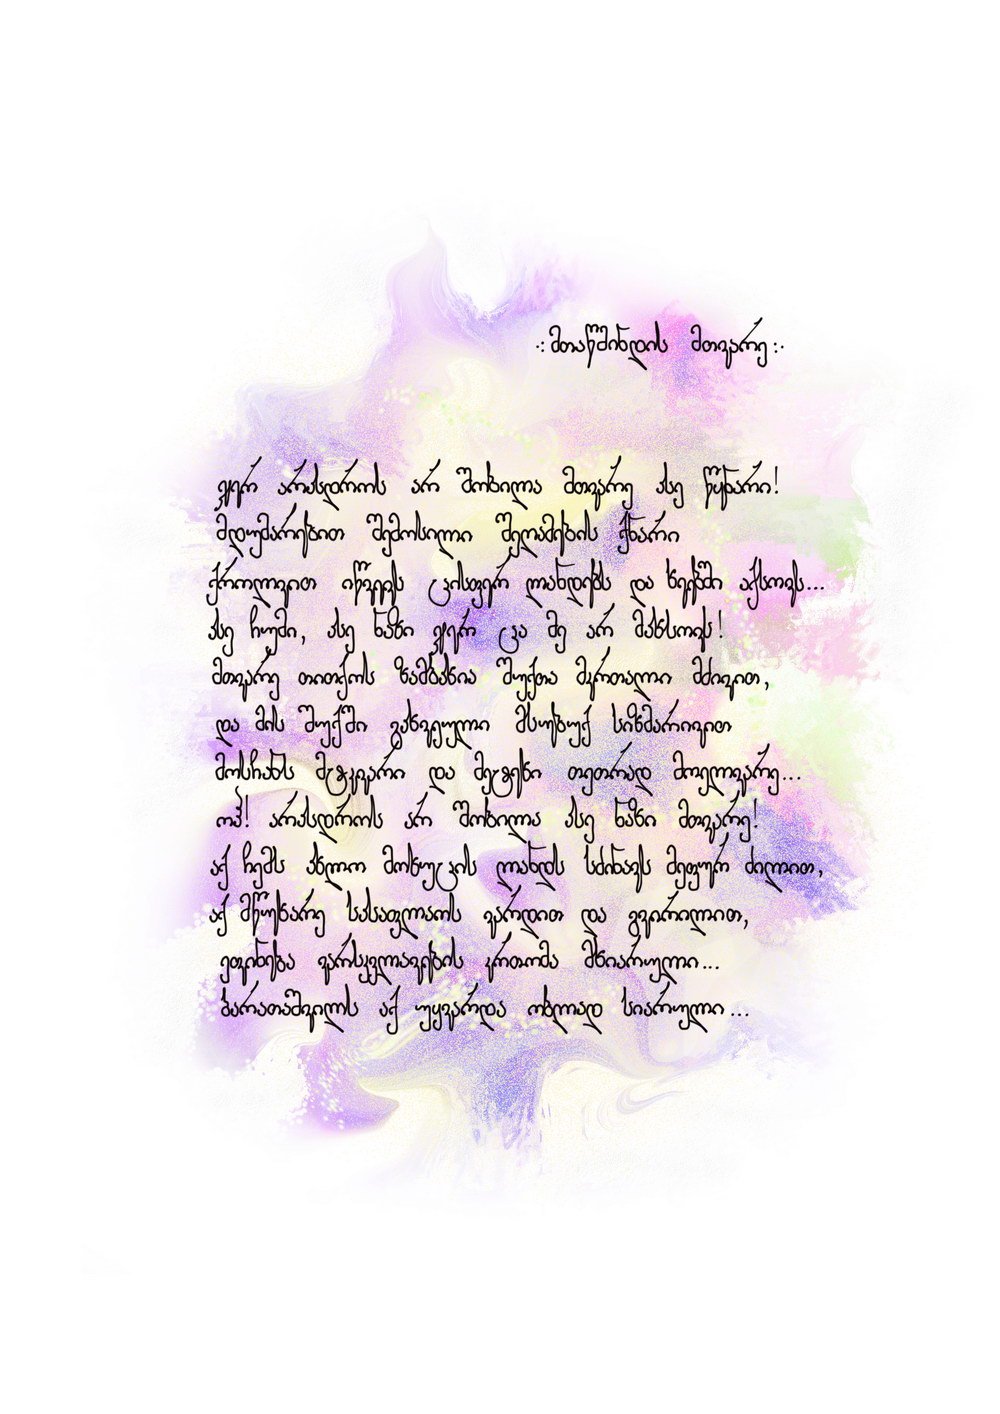 .:მთაწმინდის მთვარე:.
ჯერ არასდროს არ შობილა მთვარე ასე წყნარი!
მდუმარებით შემოსილი შეღამების ქნარი
ქროლვით იწვევს ცისფერ ლანდებს და ხეებში აქსოვს...
ასე ჩუმი, ასე ნაზი ჯერ ცა მე არ მახსოვს!
მთვარე თითქოს ზამბახია შუქთა მკრთალი მძივით,
და მის შუქში გახვეული მსუბუქ სიზმარივით
მოსჩანს მტკვარი და მეტეხი თეთრად მოელვარე...
ოჰ! არასდროს არ შობილა ასე ნაზი მთვარე!
აქ ჩემს ახლო მოხუცის ლანდს სძინავს მეფურ ძილით,
აქ მწუხარე სასაფლაოს ვარდით და გვირილით,
ეფინება ვარსკვლავების კრთომა მხიარული...
ბარათაშვილს აქ უყვარდა ობლად სიარული...